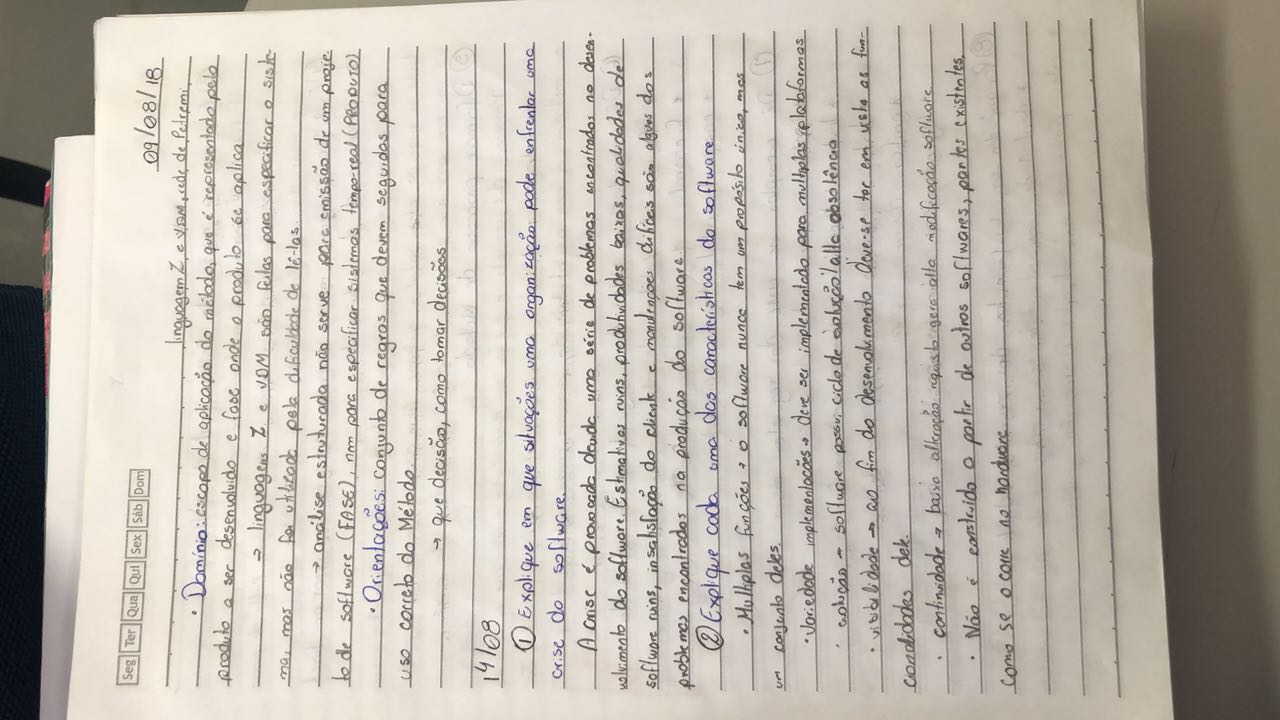 Seg Ter Qua Qui Sex Sáb Dom
09/08/18
linguagem Z e VDM, rede de Petremi
• Domínio: escopo de aplicação do método, que é representado pelo
produto a ser desenvolvido e fase onde o produto se aplica
→ linguagens Z e VDM são feitas para especificar o siste-
ma, mas não foi utilizado pela dificuldade de lê-las.
→ análise estruturada não serve para emissão de um proje-
to de software (FASE), nem para especificar sistemas tempo-real (PRODUTO)
• Orientações: conjunto de regras que devem seguidas para
uso correto do Método.
→ que decisão, como tomar decisões
14/08
① Explique em que situações uma organização pode enfrentar uma
crise do software.
A crise é provocada devido uma série de problemas encontrados no desen-
volvimento do software. Estimativas ruins, produtividades baixas, qualidades de
software ruins, insatisfação do cliente e manutenções difíceis são alguns dos
problemas encontrados na produção do software.
② Explique cada uma das características do software
• Multiplas funções → o software nunca tem um propósito único, mas
um conjunto deles.
• Variedade implementações → deve ser implementado para multiplas plataformas
• evolução → software possui ciclo de evolução/alta obsolência
• visibilidade → ao fim do desenvolvimento deve-se ter em vista as fun-
cionalidades dele.
• continuidade → baixa alteração requisito gera alta modificação software
• Não é construído a partir de outros softwares, partes existentes
como se ocorre no hardware